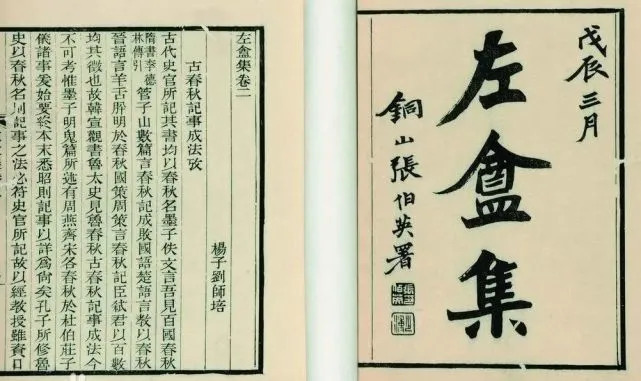 戊辰三月
左盦集
銅山張伯英署
左盦集卷二
古春秋記事成法攷
楊子劉師培
古代史官所記其書均以春秋名墨子佚文言吾見百國春秋
隋書李德林傳引管子山數篇言春秋記成敗國語楚語言教以春秋
晉語言羊舌肸明於春秋國策周策言春秋記臣弒君以百數
均其徵也故韓宣觀書魯太史見魯春秋古春秋記事成法今
不可考惟墨子明鬼篇所述有周燕齊宋各春秋於杜伯莊子
儀諸事爰始要終本末悉昭則記事以詳爲尙矣孔子所修魯
史以春秋名則記事之法必符史官所記故以經教授雖資口